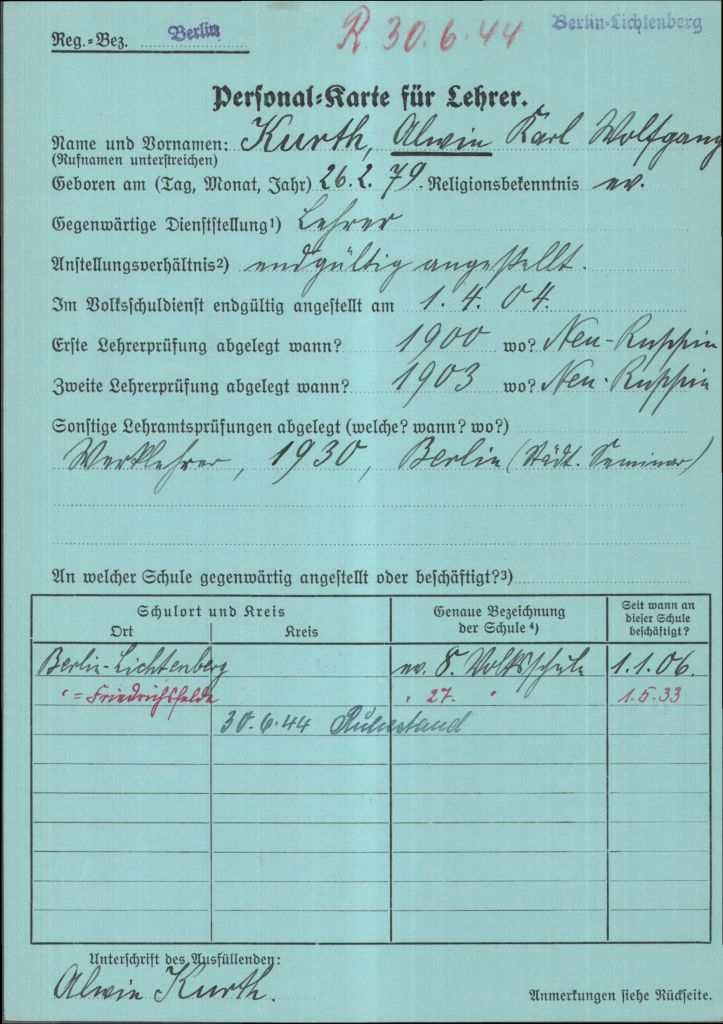 Reg.=Bez. Berlin
R 30.6.44
Berlin-Lichtenberg
Personal=Karte für Lehrer.
Name und Vornamen: Kurth, Alwin Karl Wolfgang
(Rufnamen unterstreichen)
Geboren am (Tag, Monat, Jahr) 26.2.79. Religionsbekenntnis ev.
Gegenwärtige Dienststellung¹) Lehrer
Anstellungsverhältnis²) endgültig angestellt.
Im Volksschuldienst endgültig angestellt am 1.4.04.
Erste Lehrerprüfung abgelegt wann? 1900 wo? Neu-Ruppin
Zweite Lehrerprüfung abgelegt wann? 1903 wo? Neu-Ruppin
Sonstige Lehramtsprüfungen abgelegt (welche? wann? wo?)
Werklehrer, 1930, Berlin (Städt. Seminar)
An welcher Schule gegenwärtig angestellt oder beschäftigt?³)
Schulort und Kreis
Ort Kreis
Genaue Bezeichnung
der Schule ⁴)
Seit wann an
dieser Schule
beschäftigt?
Berlin-Lichtenberg ev. 8. Volksschule 1.1.06.
" =Friedrichsfelde " 27. " 1.5.33
30.6.44 Ruhestand
Unterschrift des Ausfüllenden:
Alwin Kurth.
Anmerkungen siehe Rückseite.